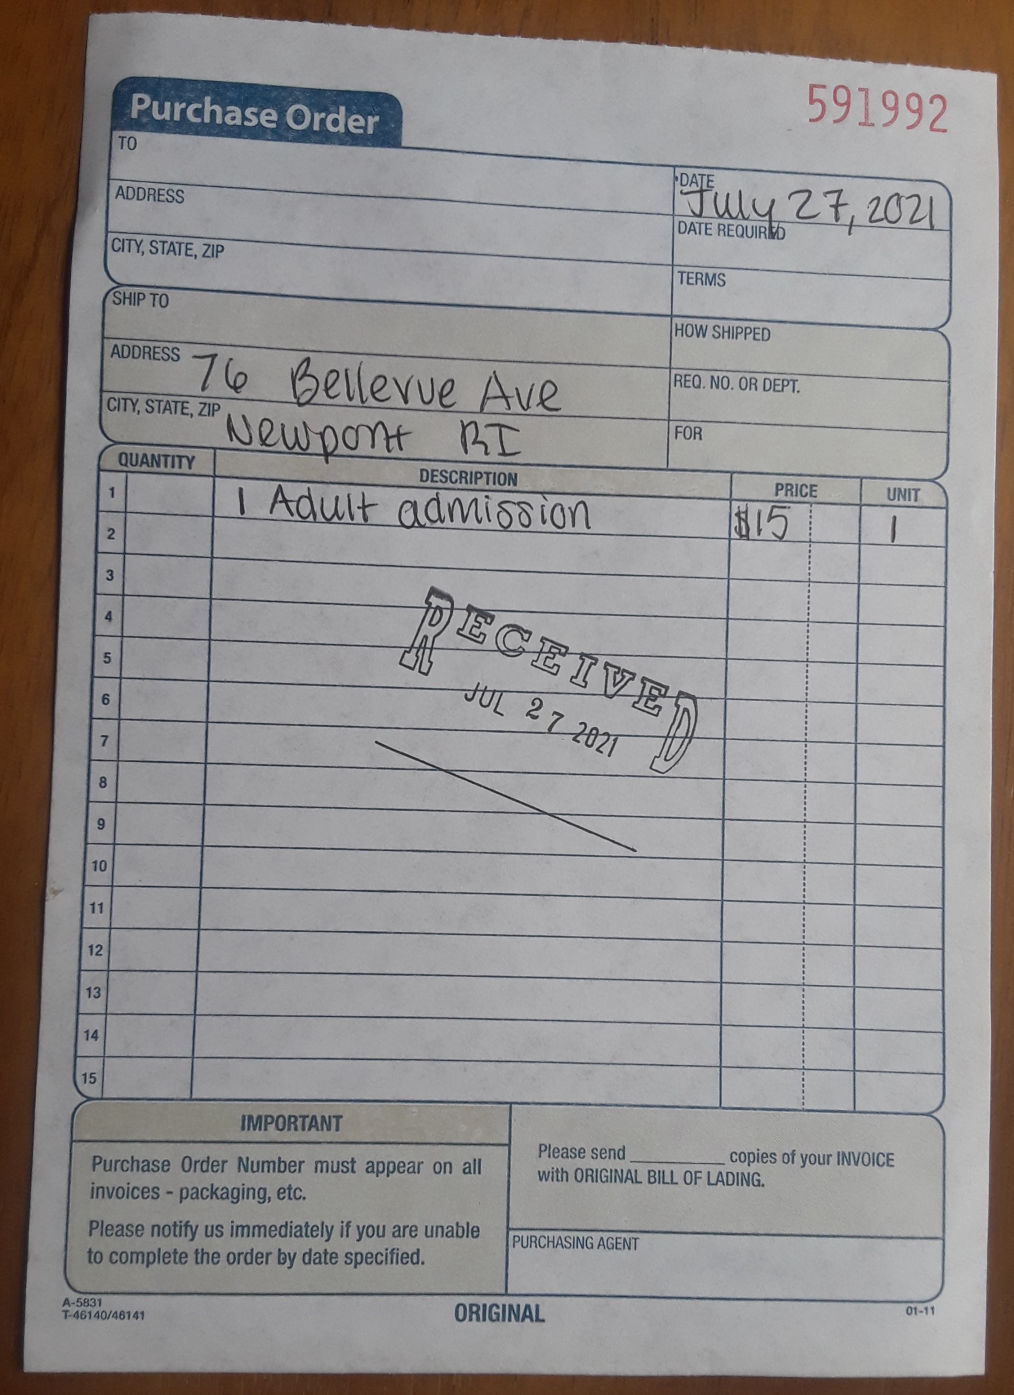 591992
Purchase Order
TO
DATE July 27, 2021
ADDRESS
DATE REQUIRED
CITY, STATE, ZIP
TERMS
SHIP TO
HOW SHIPPED
ADDRESS 76 Bellevue Ave
REQ. NO. OR DEPT.
CITY, STATE, ZIP Newport RI
FOR
QUANTITY DESCRIPTION PRICE UNIT
1 1 Adult admission $15 1
2
3
4
5
RECEIVED
6
JUL 27 2021
7
8
9
10
11
12
13
14
15
IMPORTANT
Purchase Order Number must appear on all
invoices - packaging, etc.
Please notify us immediately if you are unable
to complete the order by date specified.
Please send __________ copies of your INVOICE
with ORIGINAL BILL OF LADING.
PURCHASING AGENT
A-5831
T-46140/46141
ORIGINAL
01-11